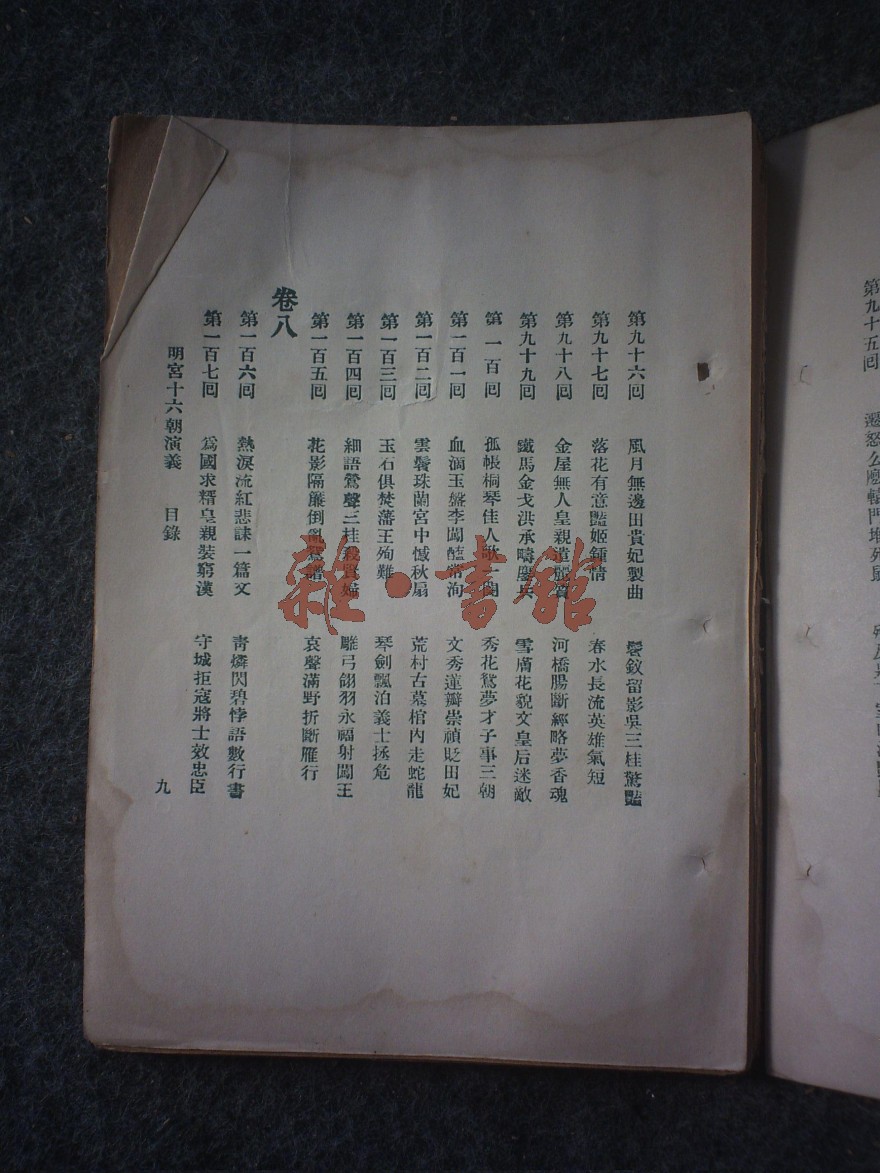 第九十五回　遷怒公廳轅門堆死
第九十六回　風月無邊田貴妃製曲　鬟釵留影吳三桂驚豔
第九十七回　落花有意豔姬鍾情　春水長流英雄氣短
第九十八回　金屋無人皇親遣麗質　河橋腸斷經略夢香魂
第九十九回　鐵馬金戈洪承疇鏖兵　雪膚花貌文皇后迷敵
第一百回　孤帳桐琴佳人歌一闋　秀花鴛夢才子事三朝
第一百一回　血滴玉盤李闖醢常洵　文秀蓮瓣崇禎貶田妃
第一百二回　雲鬢珠蘭宮中憾秋扇　荒村古墓棺內走蛇龍
第一百三回　玉石俱焚藩王殉難　琴劍飄泊義士拯危
第一百四回　細語鶯聲三桂殺賢婦　雕弓翎羽永福射闖王
第一百五回　花影隔簾倒亂鴛譜　哀聲滿野折斷雁行
卷八
第一百六回　熱淚流紅悲誄一篇文　青燐閃碧悖語數行書
第一百七回　爲國求糈皇親裝窮漢　守城拒寇將士效忠臣
明宮十六朝演義　目錄
九
雜·書館